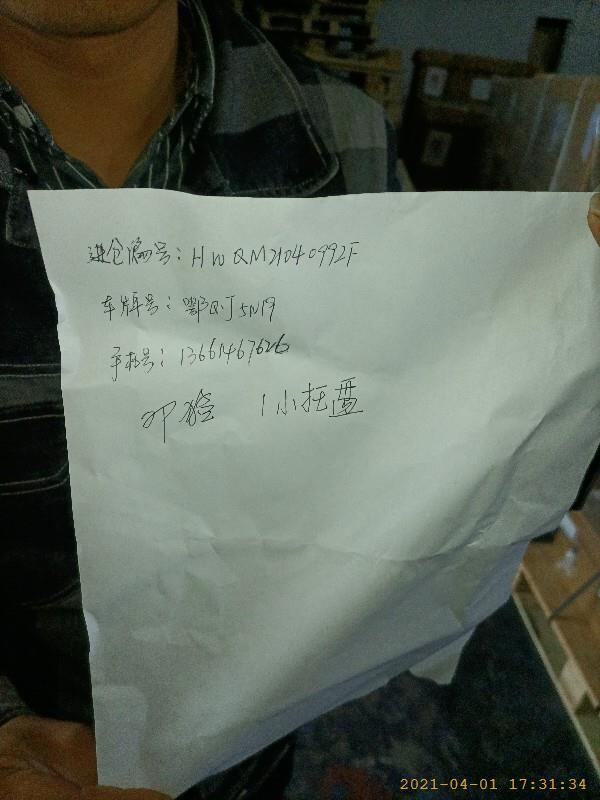 进仓编号：HWQM21040992F
车牌号：鄂QJ5N19
手机号：13661467626
1小托
2021-04-01 17:31:34